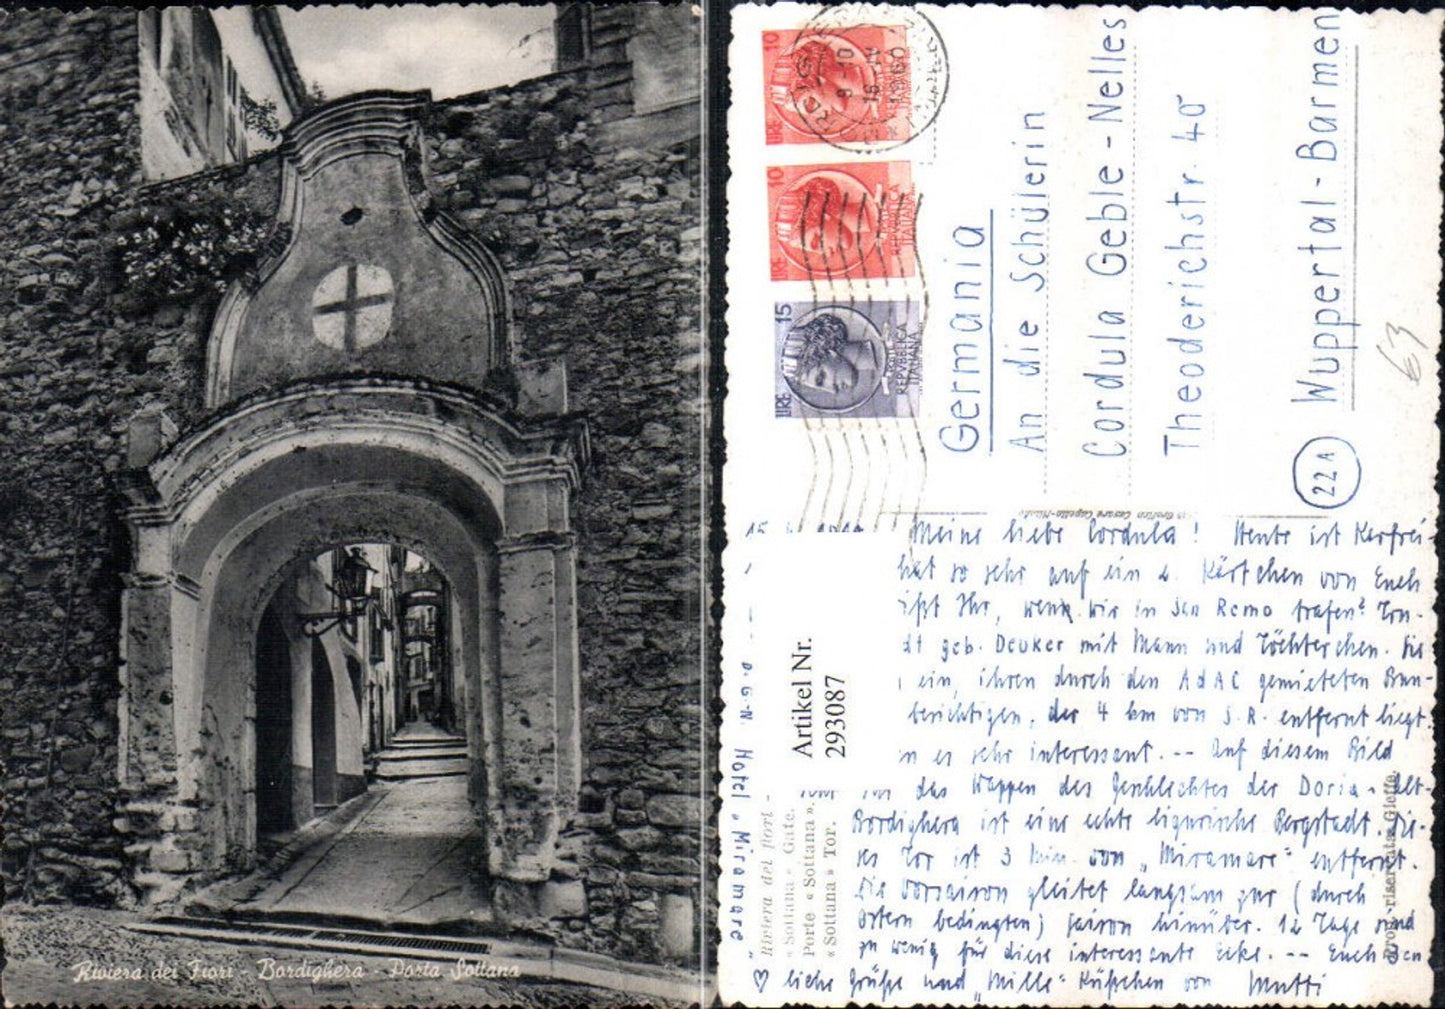 Riviera dei Fiori - Bordighera - Porta Sottana
LIRE 10
REPVBBLICA
ITALIANA
LIRE 10
REPVBBLICA
ITALIANA
LIRE 15
POSTE
REPVBBLICA
ITALIANA
Germania
An die Schülerin
Cordula Geble-Nelles
Theoderichstr 40
Wuppertal-Barmen
22a
63
Meine liebe Cordula! Heute ist Karfrei-
so sehr auf ein 2. Kärtchen von Euch
Ihr, wenn wir in San Remo trafen?
geb. Deuker mit Mann und Töchterchen. Sie
ein, ihren durch den AdAC gemieteten Bun-
berichtigen, der 4 km von S.R. entfernt liegt.
es sehr interessant. -- Auf diesem Bild
das Wappen des Geschlechtes der Doria. Alt-
Bordighera ist eine echte ligurische Bergstadt. Die-
ses Tor ist 3 Min. von „Miramare" entfernt.
Die Vorsaison gleitet langsam zur (durch
Ostern bedingten) Saison hinüber. 12 Tage sind
zu wenig für diese interessante Ecke. -- Euch
liche Grüße und „Mille" Küßchen von Mutti
Hotel „Miramare"
Artikel Nr.
293087
Riviera dei fiori -
« Sottana » Gate.
Porte « Sottana ».
« Sottana » Tor.